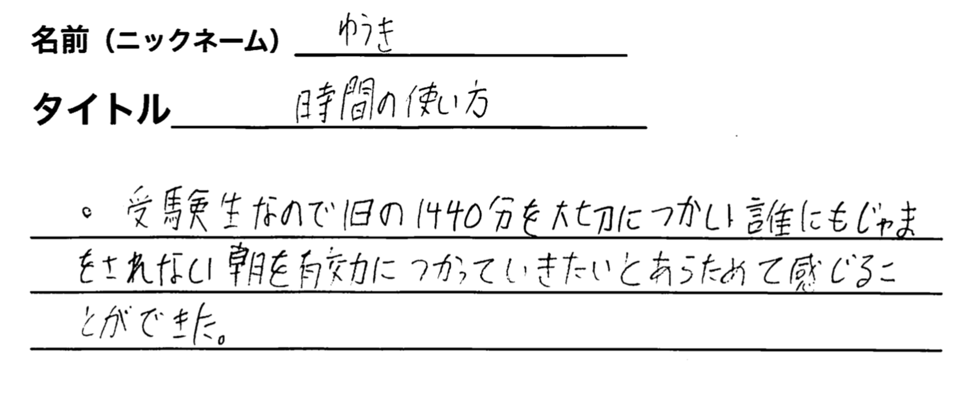 名前（ニックネーム） ゆうき
タイトル 時間の使い方
。受験生なので1日の1440分を大切につかい誰にもじゃま
をされない朝を有効につかっていきたいとあらためて感じるこ
とができた。